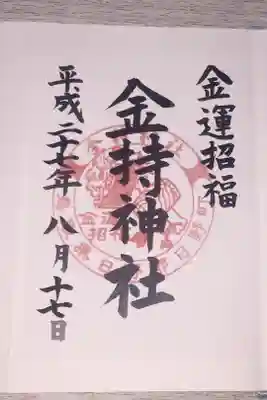 金運招福
金持神社
平成二十七年八月十七日